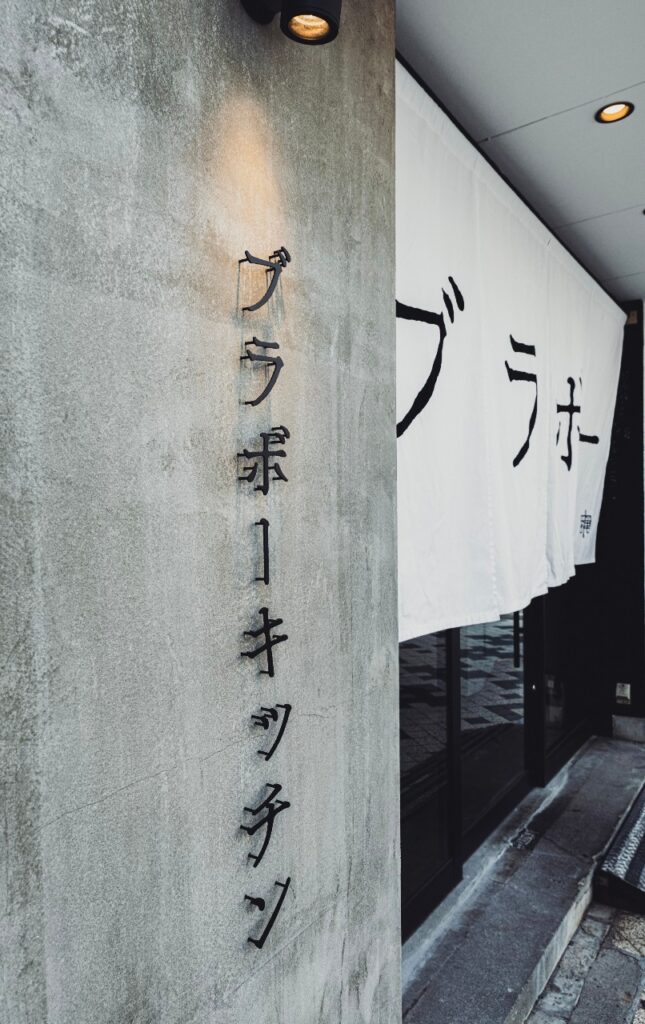 ブラボーキッチン
ブラボー